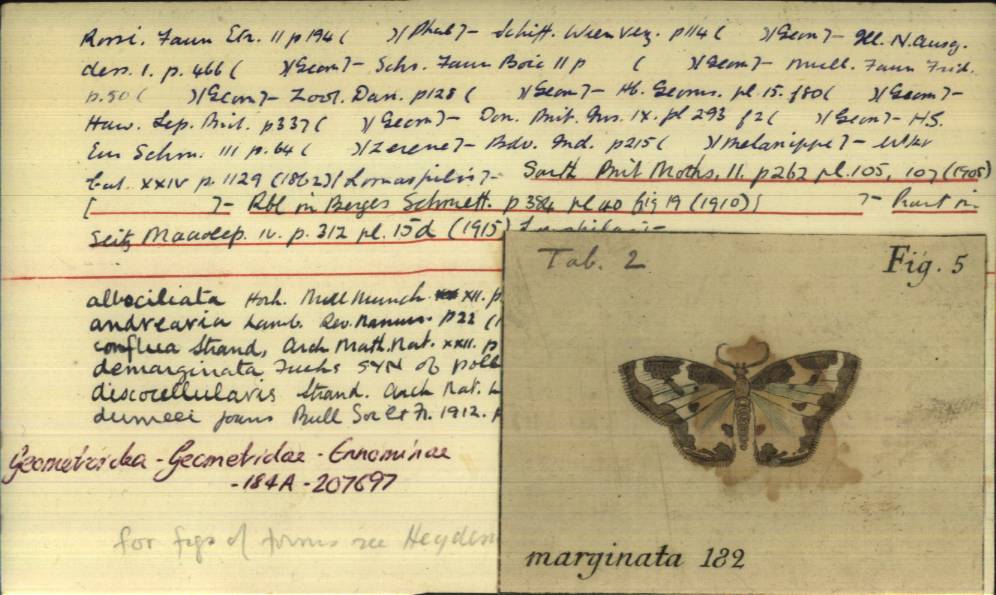 Rossi. Faun Etr. II p194 ( )(Phal)- Schiff. Wien Verz. p114 ( )(Geom)- Ill. N. Ausg.
ders. 1. p. 466 ( )(Geom)- Schr. Faun Boic II p ( )(Geom)- Mull. Faun Frid.
p.50 ( )(Geom)- Zool. Dan. p128 ( )(Geom)- Hb. Geoms. pl. 15. f80 ( )(Geom)-
Haw. Lep. Brit. p337 ( )(Geom)- Don. Brit. Ins. IX. pl 293 f2 ( )(Geom)- H.S.
Eur Schm. III p. 64 ( )(Zerene)- Bdv. Ind. p215 ( )(Melanippe)- Wlkr
Cat. XXIV p. 1129 (1862)(Lomaspilis)- South Brit Moths, II. p262 pl. 105, 107 (1908)
[ ]- Rbl in Berges Schmett. p384 pl 40 fig 19 (1910)[ ]- Prout in
Seitz Macrolep. IV. p. 312 pl. 15d (1915)
albociliata Mitt Munch XII. p
andrearia Lamb. Rev. p22 (1
conflua Strand, Arch Math. Nat. XXII. p
demarginata Fuchs SYN of poll
discocellularis Strand. Arch Nat.
dumeei Joans Bull Soc Ent Fr. 1912.
Geometroidea - Geometridae - Ennominae
- 184A - 207697
for figs of forms see Heyden
Tab. 2
Fig. 5
marginata 182